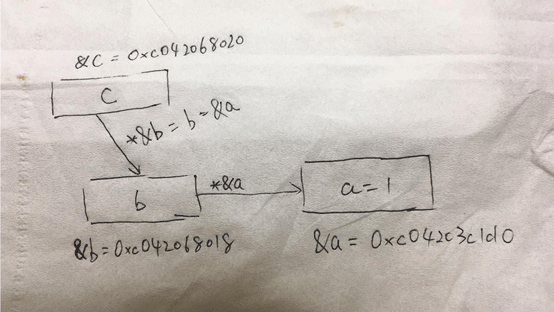 &C = 0xc042068020
C
*&b = b = &a
b
*&a
a = 1
&b = 0xc042068018
&a = 0xc042c3c1d0